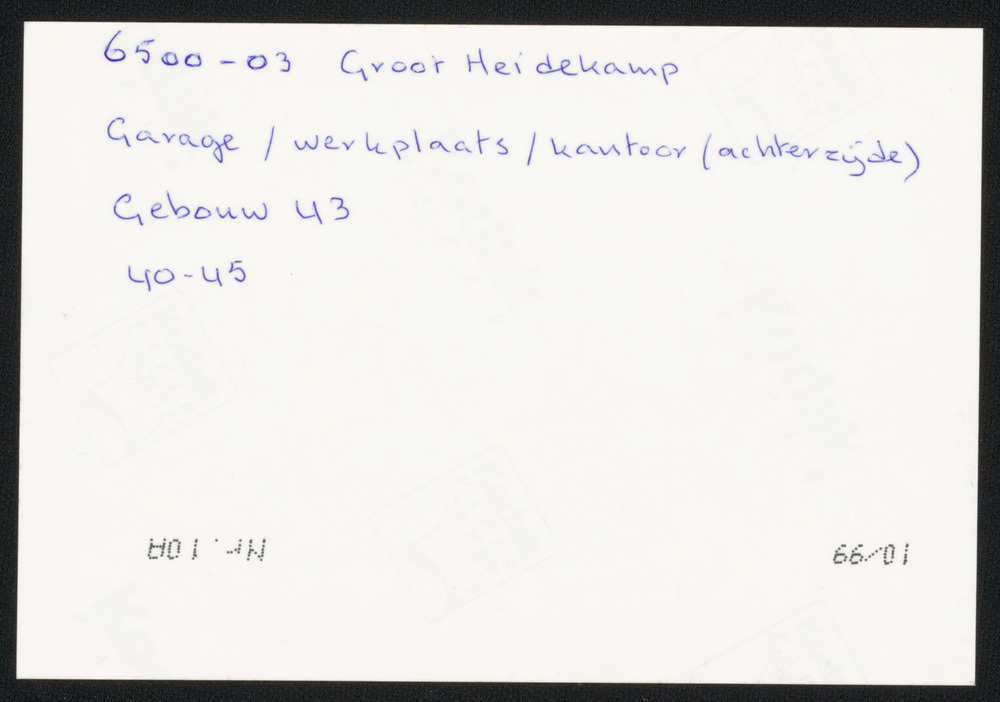 6500-03 Groot Heidekamp
Garage / werkplaats / kantoor (achterzijde)
Gebouw 43
40-45
Nr. 10A